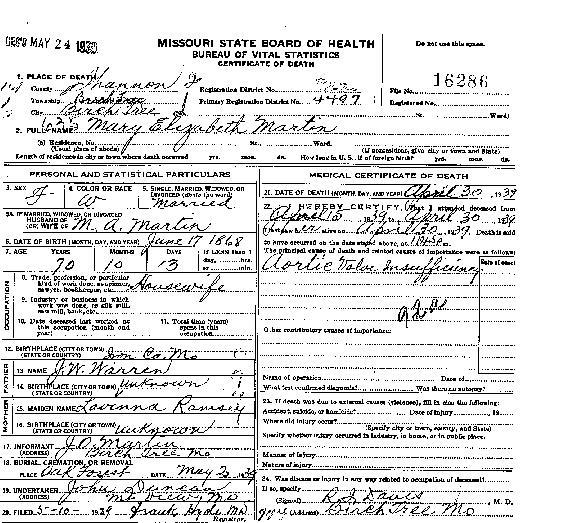 REC'D MAY 24 1939
MISSOURI STATE BOARD OF HEALTH
BUREAU OF VITAL STATISTICS
CERTIFICATE OF DEATH
Do not use this space.
1. PLACE OF DEATH
County Shannon
Registration District No.
File No. 16286
Township Birch Tree
Primary Registration District No. 4497
Registered No.
City Birch Tree
No. St. Ward)
2. FULL NAME Mary Elizabeth Martin
(a) Residence, No. St. Ward.
(Usual place of abode) (If nonresident, give city or town and State)
Length of residence in city or town where death occurred yrs. mos. ds. How long in U. S., if of foreign birth? yrs. mos. ds.
PERSONAL AND STATISTICAL PARTICULARS
3. SEX F
4. COLOR OR RACE W
5. SINGLE, MARRIED, WIDOWED, OR DIVORCED (write the word) Married
5A. IF MARRIED, WIDOWED, OR DIVORCED
HUSBAND OF
(OR) WIFE OF M. A. Martin
6. DATE OF BIRTH (MONTH, DAY, AND YEAR) June 17 1868
7. AGE YEARS MONTHS DAYS If LESS than 1
70 10 13 day, hrs. or min.
OCCUPATION
8. Trade, profession, or particular kind of work done, as spinner, sawyer, bookkeeper, etc. Housewife
9. Industry or business in which work was done, as silk mill, saw mill, bank, etc.
10. Date deceased last worked at this occupation (month and year)
11. Total time (years) spent in this occupation
12. BIRTHPLACE (CITY OR TOWN) Co. Mo
(STATE OR COUNTRY)
FATHER
13. NAME J. W. Warren
14. BIRTHPLACE (CITY OR TOWN) unknown
(STATE OR COUNTRY)
MOTHER
15. MAIDEN NAME Ramsey
16. BIRTHPLACE (CITY OR TOWN) unknown
(STATE OR COUNTRY)
17. INFORMANT J. O. Martin
(ADDRESS) Birch Tree Mo
18. BURIAL, CREMATION, OR REMOVAL
PLACE Oak Forest DATE May 2 1939
19. UNDERTAKER John Duncan
(ADDRESS) Mt View Mo
20. FILED 5-10-1939 Frank Hyde MD
Registrar.
MEDICAL CERTIFICATE OF DEATH
21. DATE OF DEATH (MONTH, DAY, AND YEAR) April 30 1939
22. I HEREBY CERTIFY, That I attended deceased from
1939, to April 30 1939
I last saw alive on April 30 1939. Death is said
to have occurred on the date stated above, at m.
The principal cause of death and related causes of importance were as follows:
Date of onset
Aortic Valve Insufficiency
Other contributory causes of importance:
Name of operation Date of
What test confirmed diagnosis? Was there an autopsy?
23. If death was due to external causes (violence), fill in also the following:
Accident, suicide, or homicide? Date of injury , 19
Where did injury occur?
(Specify city or town, county, and State)
Specify whether injury occurred in industry, in home, or in public place.
Manner of injury
Nature of injury
24. Was disease or injury in any way related to occupation of deceased?
If so, specify
(Signed) R. S. Davis, M. D.
(Address) Birch Tree Mo